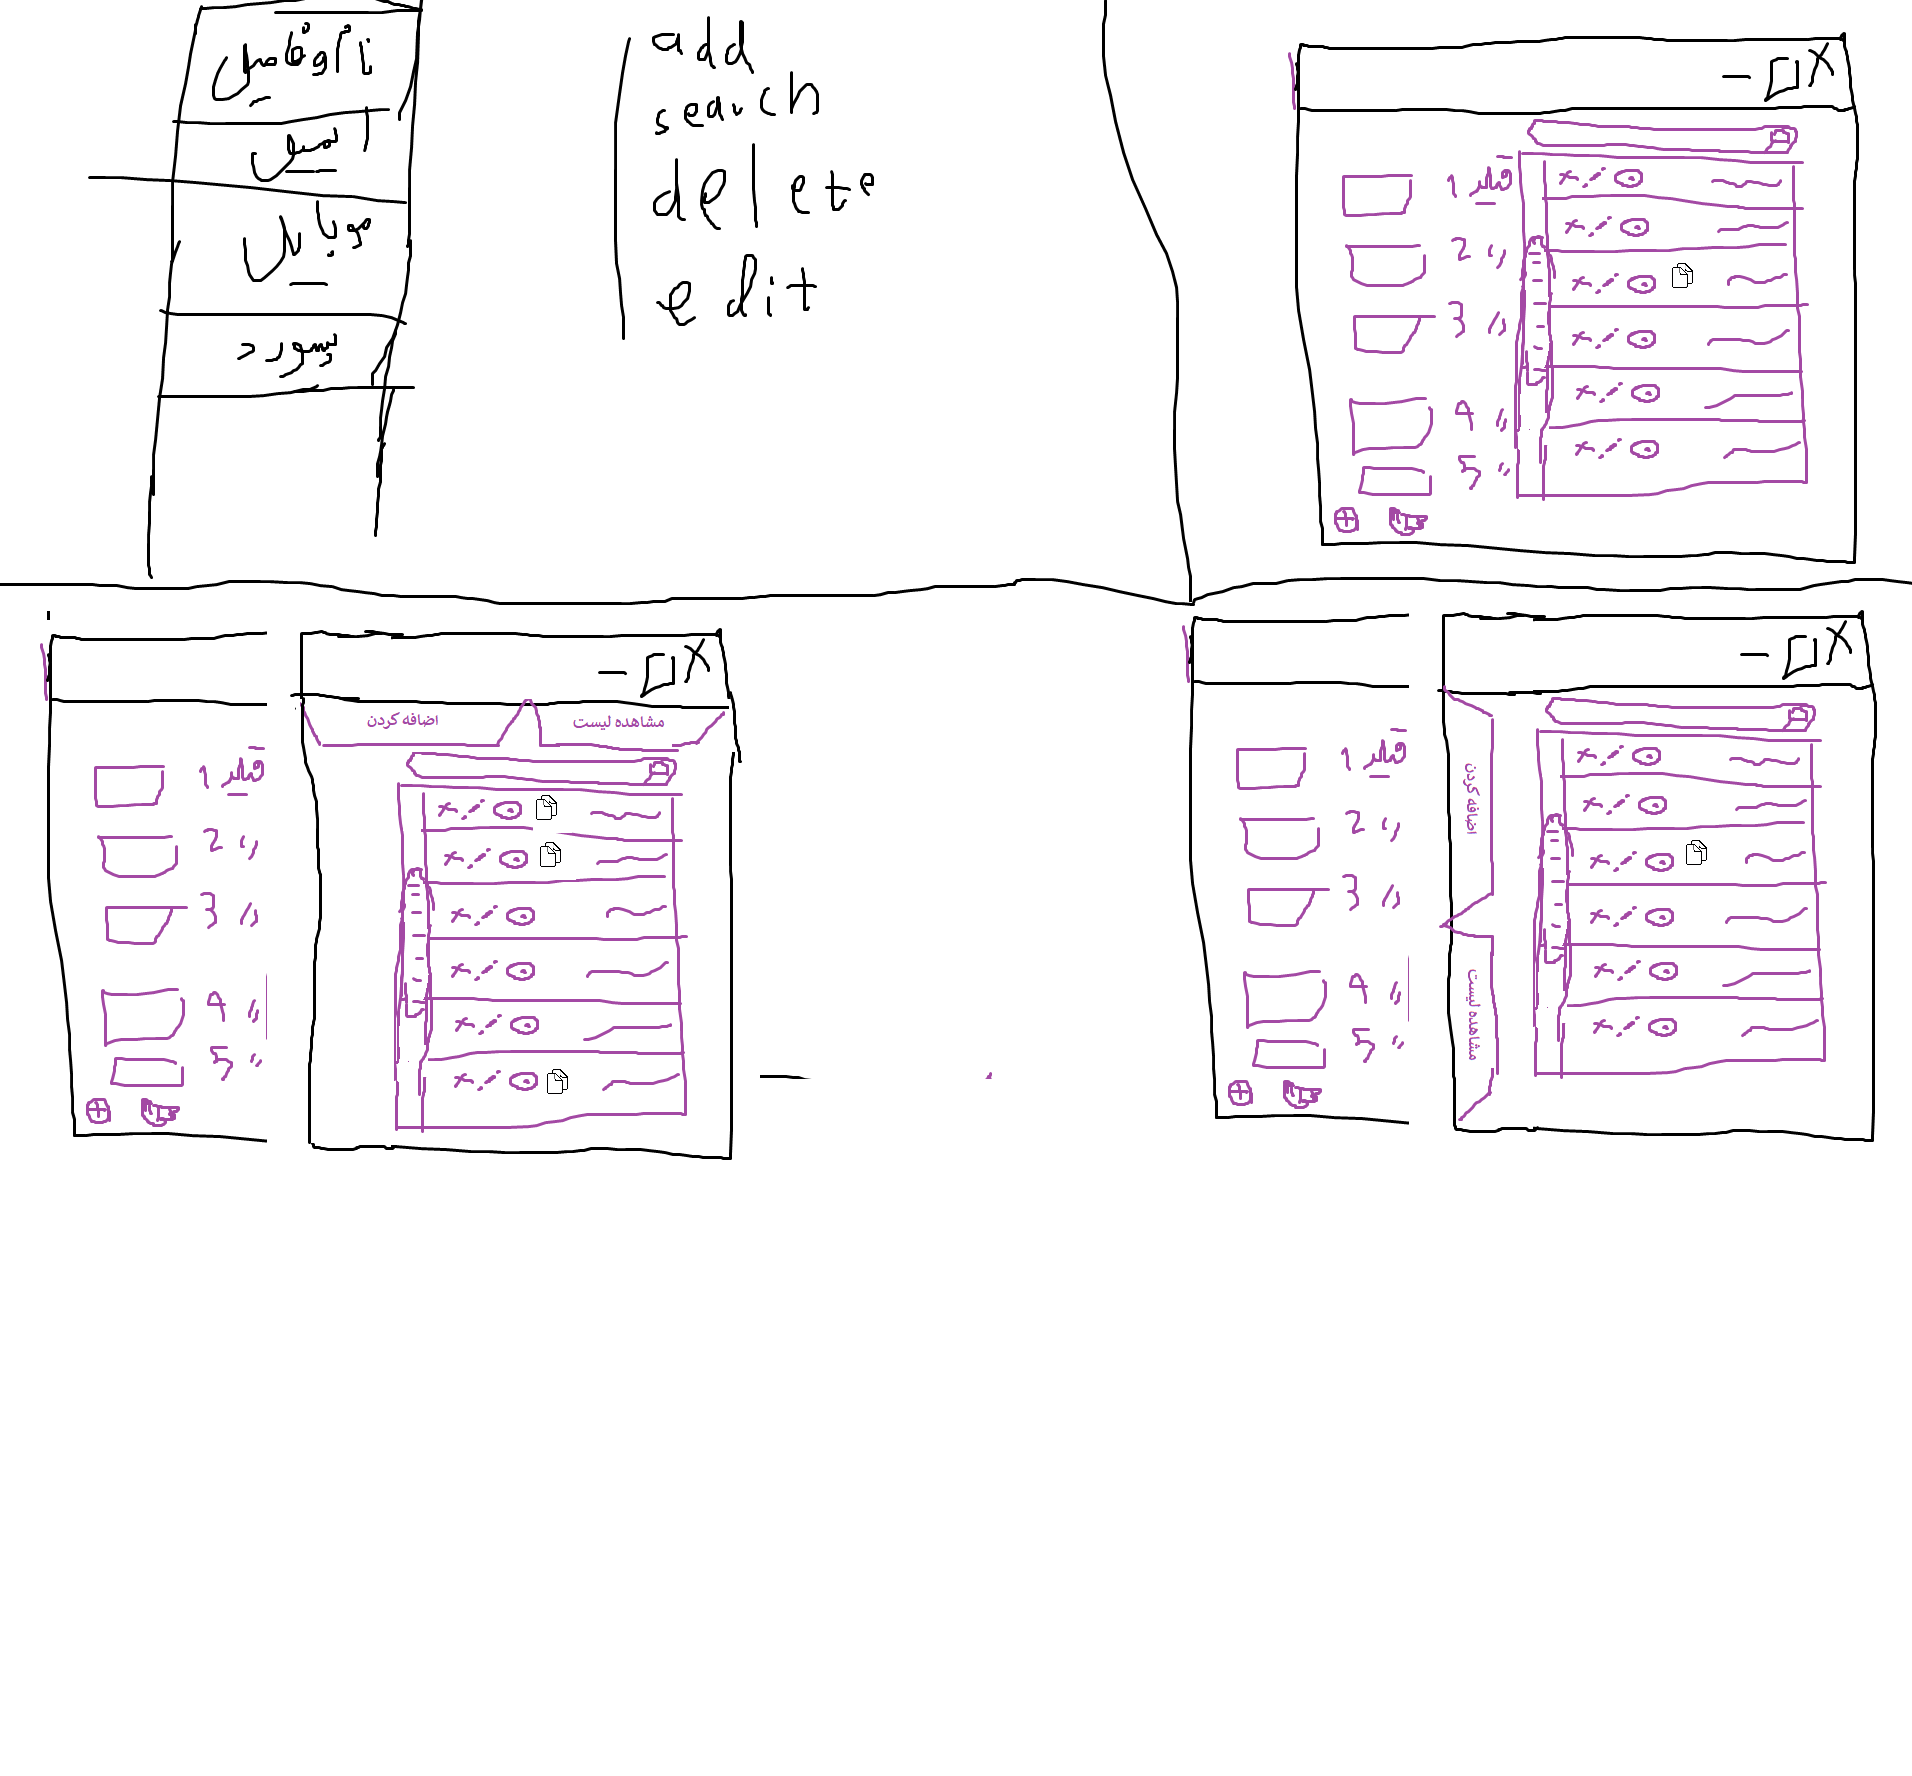 نام و فامیل
ایمیل
موبایل
پسورد
add
search
delete
edit
فیلد 1
2 "
3 "
4 "
5 "
اضافه کردن
مشاهده لیست
فیلد 1
2 "
3 "
4 "
5 "
فیلد 1
2 "
3 "
4 "
5 "
اضافه کردن
مشاهده لیست